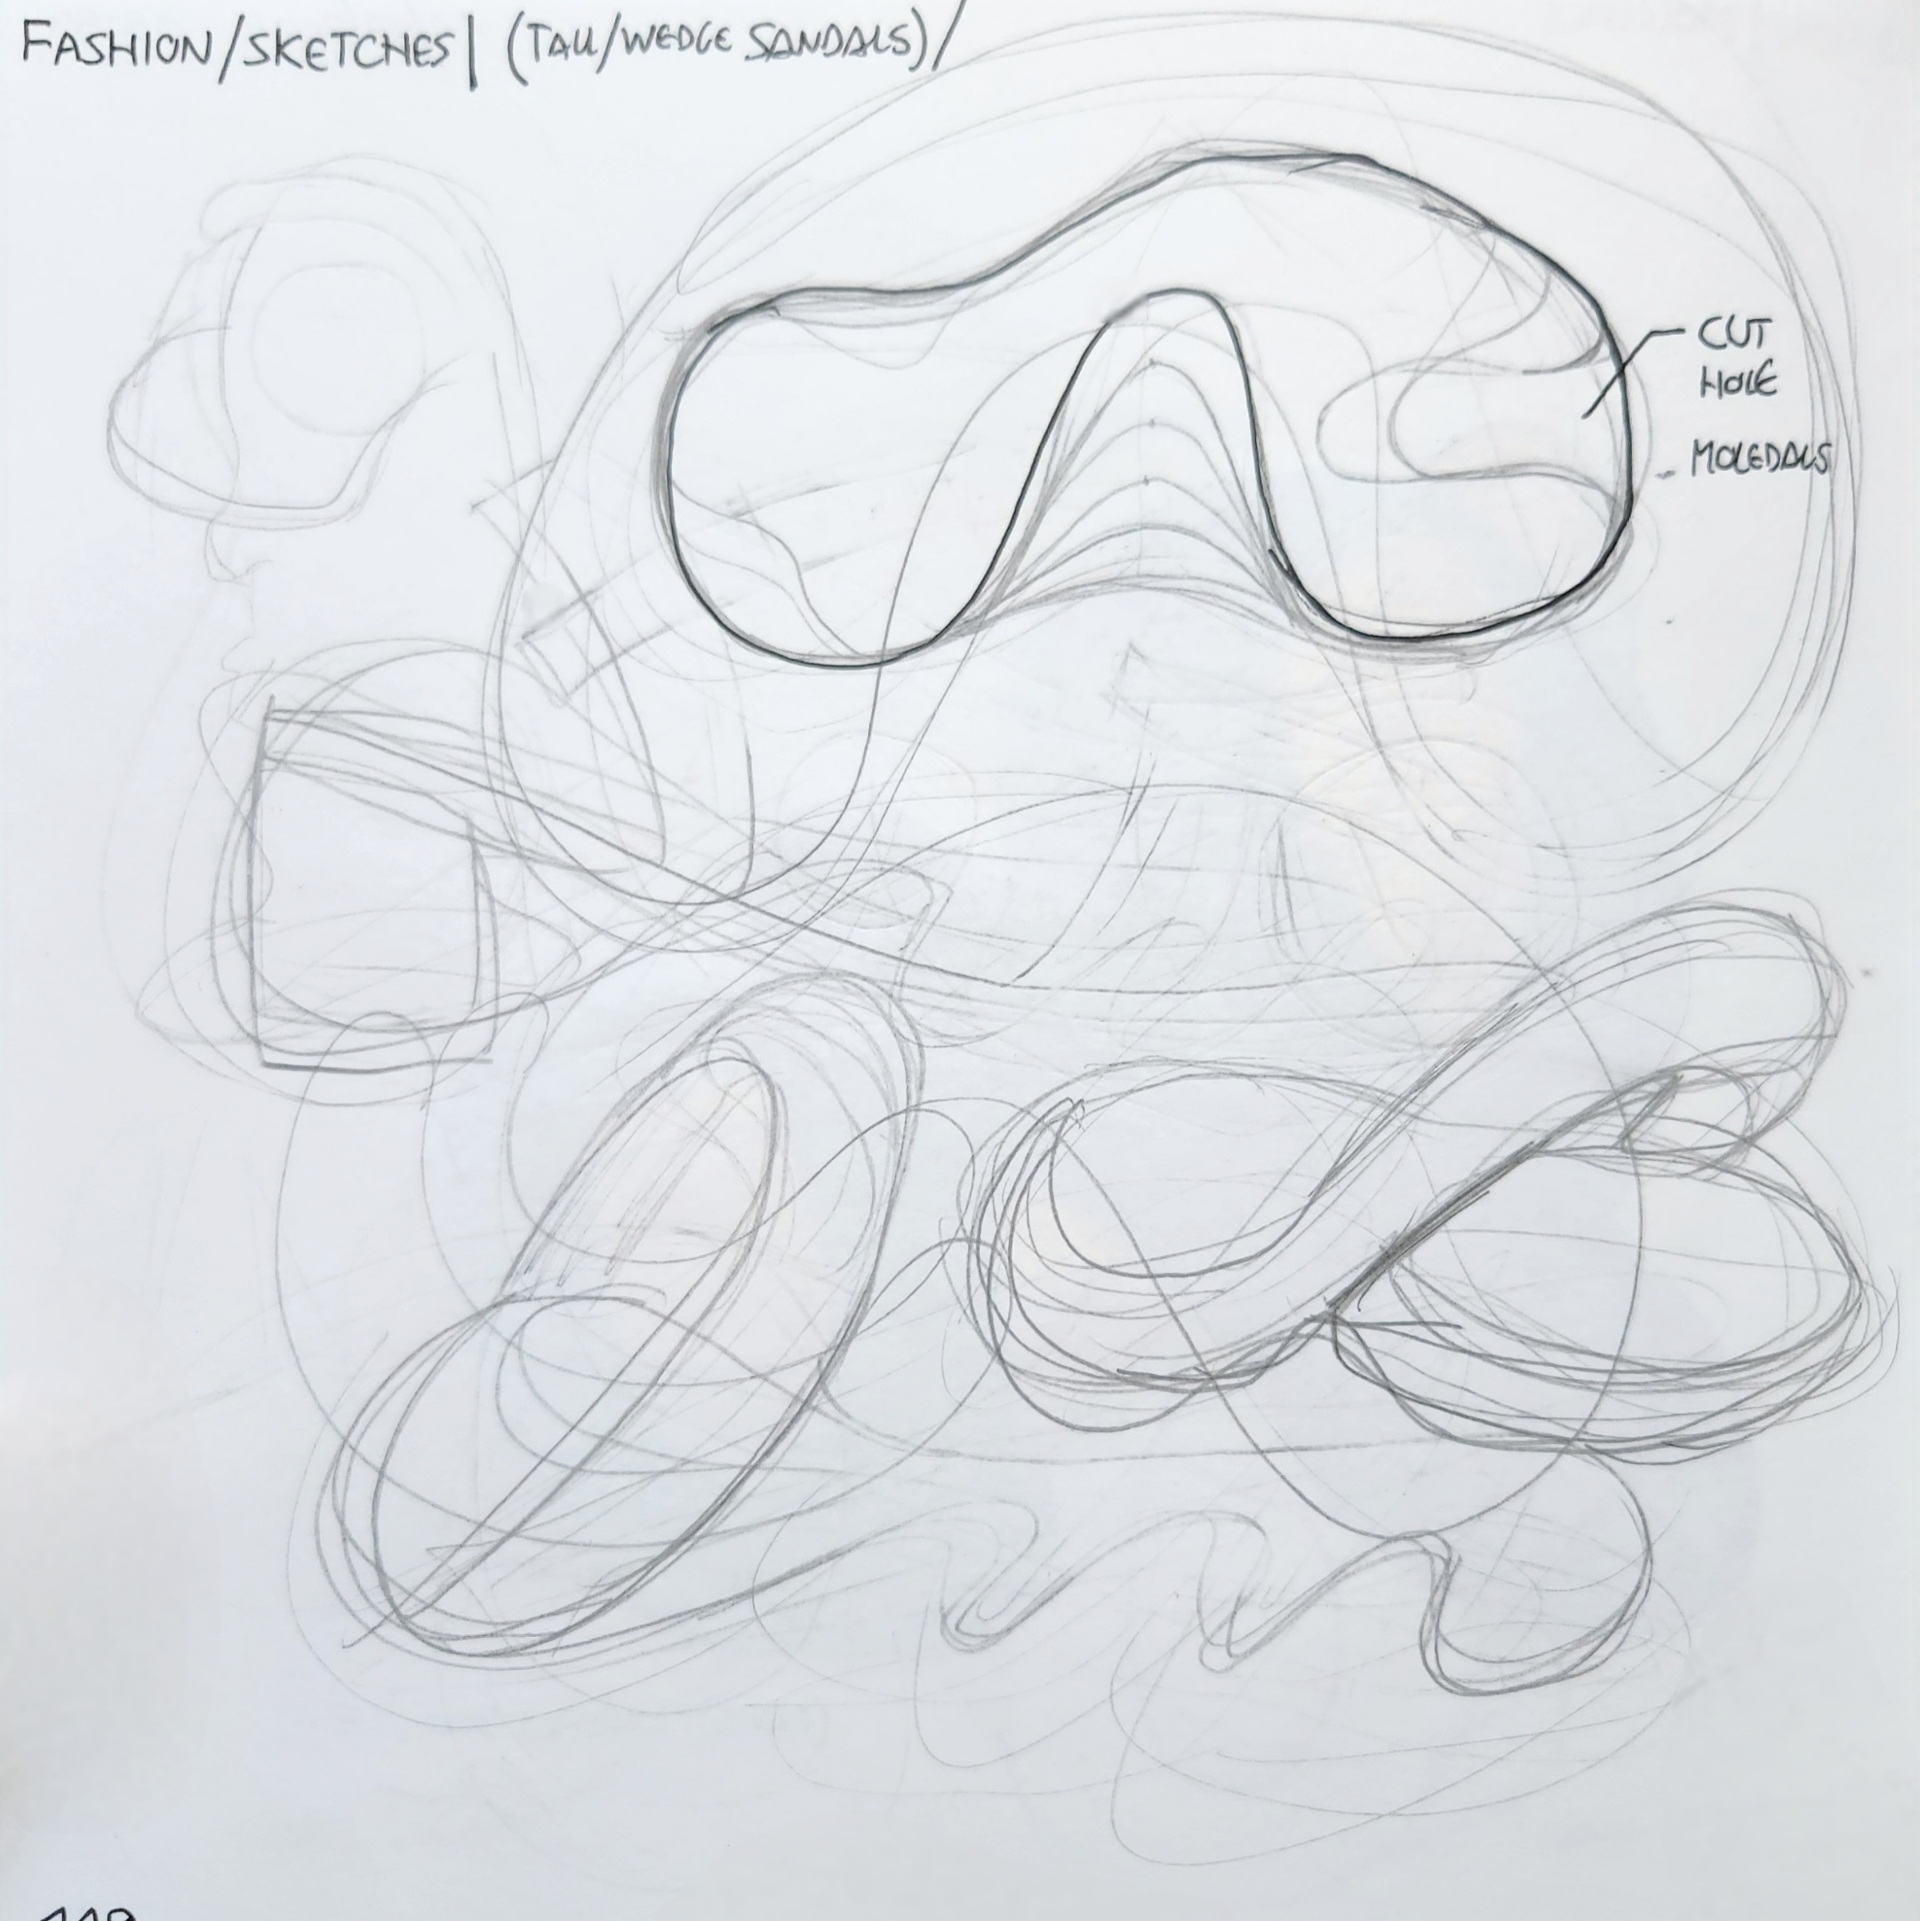 FASHION/SKETCHES| (TALL/WEDGE SANDALS)/
CUT
HOLE
- MOLEDALS